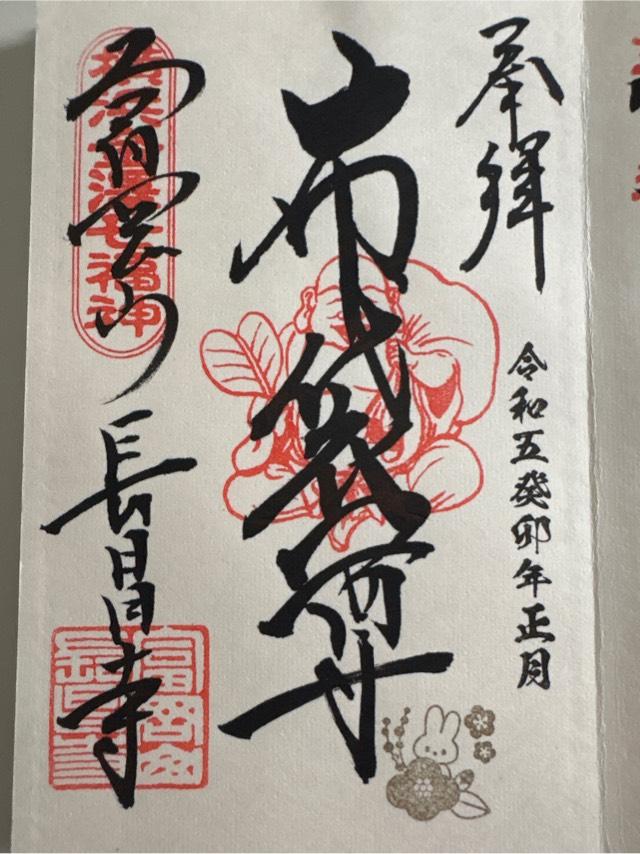 奉拝
令和五癸卯年正月
布袋尊
横浜金澤七福神
富岡山 長昌寺